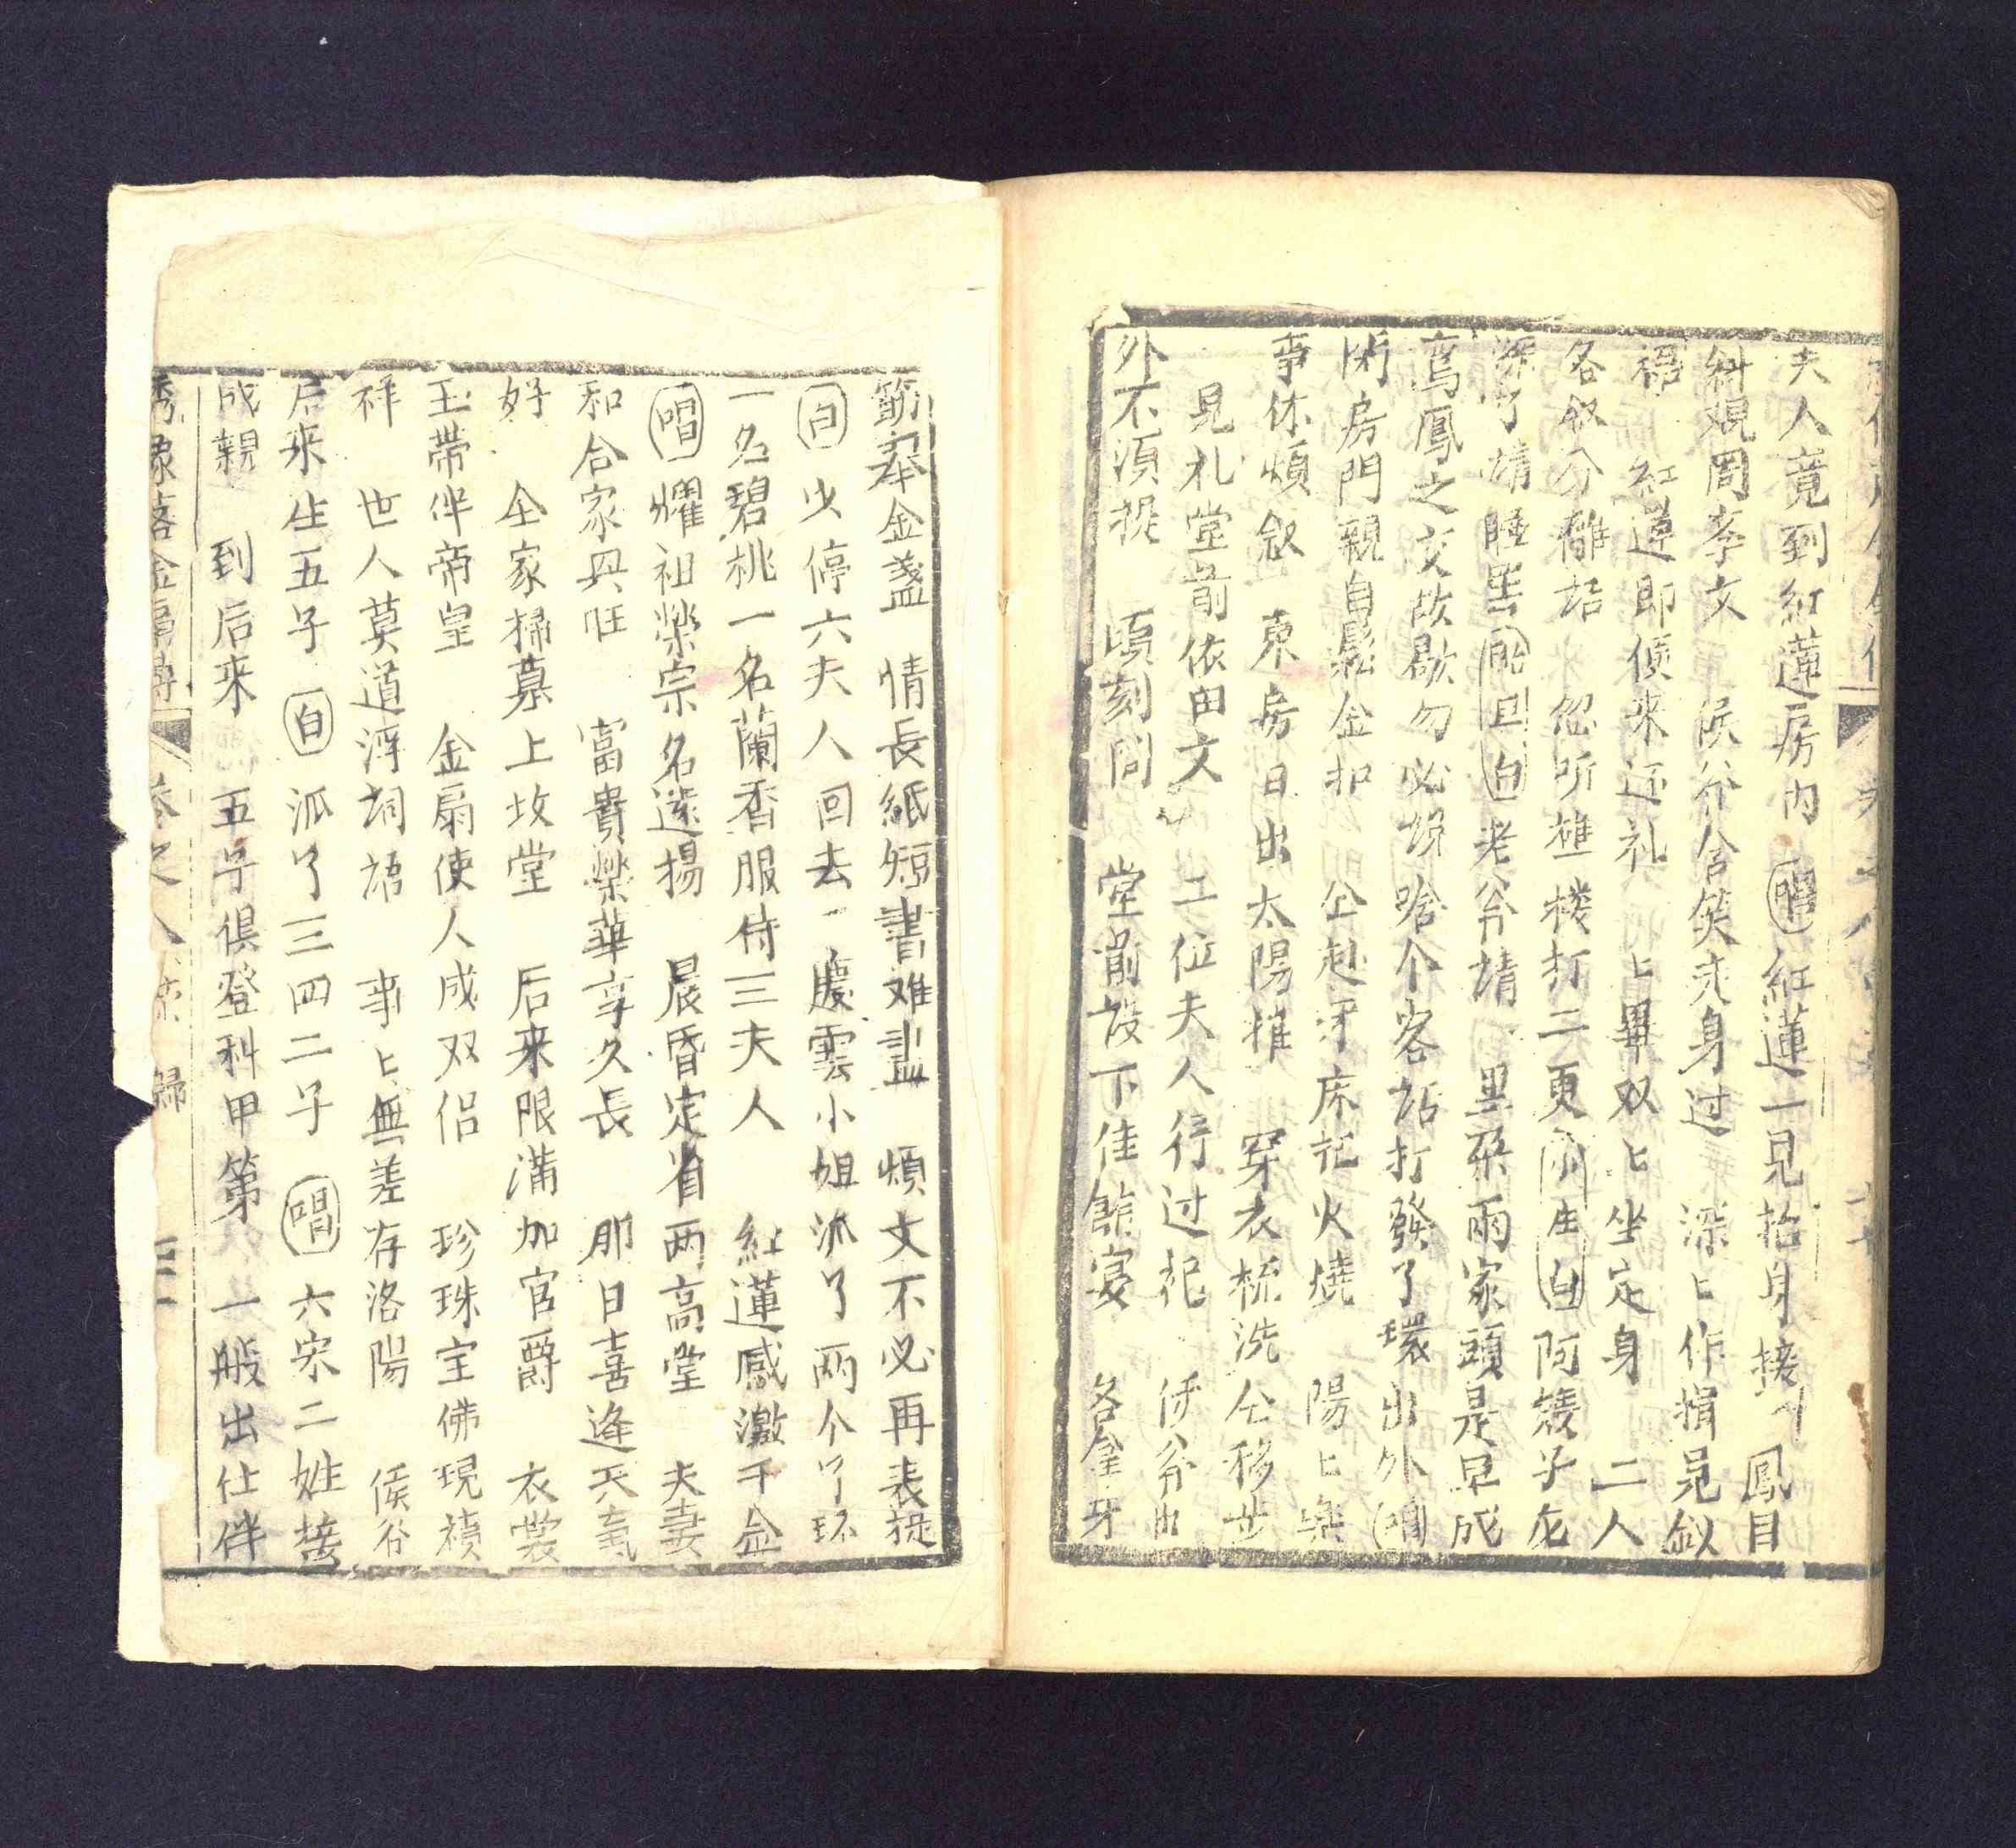 夫人竟到紅蓮房內　唱紅蓮一見抬身接　鳳目
斜覌周李文　候爷含笑走身过　深〻作揖見叙
禮　紅蓮即便来还礼　〻畢双〻坐定身　二人
各叙分離話　忽听樵楼打二更　小生白阿媭子夜
深了請睡罷　貼旦白老爷請　里朶兩家頭是早成
鸾鳳之交故歇勿必够啥个客話打發了環出外唱
闲房門親自鬆金扣　公赴牙床把火燒　陽〻樂
事休煩叙　東房日出太陽推　穿衣梳洗仝移步
見礼堂前依田文　二位夫人行过礼　侯爷出
外不須提　頃刻间　堂前設下佳餚宴　各拿牙
筯举金盞　情長紙短書难盡　煩文不必再表提
白少停六夫人回去　慶雲小姐派了两个丫环
一名碧桃一名蘭香服侍三夫人　紅蓮感激千金
唱耀祖榮宗名遠揚　晨昏定省两高堂　夫妻
和合家興旺　富貴榮華享久長　那日喜逢天氣
好　全家掃墓上坟堂　后来限滿加官爵　衣裳
玉帶伴帝皇　金扇使人成双侣　珍珠宝佛現禎
祥　世人莫道浮詞語　事〻無差存洛陽　侯爷
后来生五子　白派了三四二子　唱六宋二姓接
成親　到后来　五子俱登科甲第　一般出仕伴
秀像落金扇傳　卷之八　榮歸　三十一